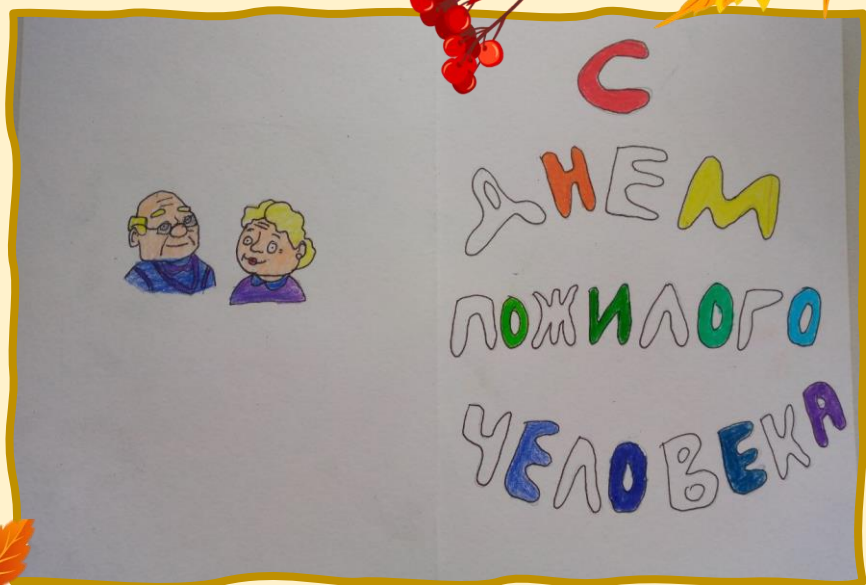 С
ДНЕМ
ПОЖИЛОГО
ЧЕЛОВЕКА